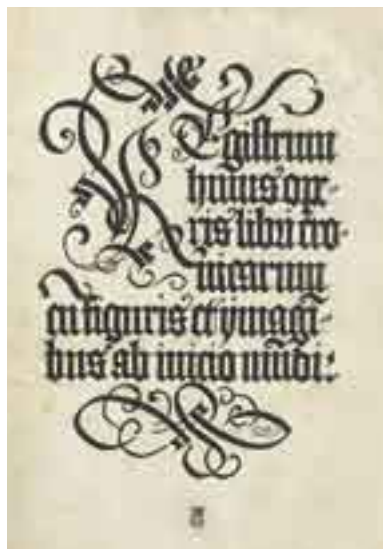 Registrum
huius ope-
ris libri cro-
nicarum
cu figuris et ymagi-
bus ab inicio mūdi: